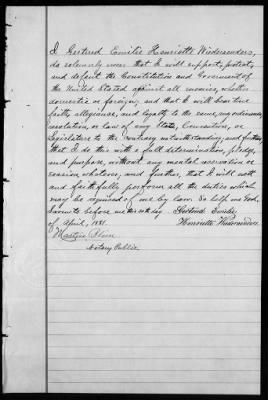 I Gertrud Emilie Henriette Wiedersanders,
do solemnly swear that I will support, protect,
and defend the Constitution and Government of
the United States against all enemies, whether
domestic or foreign, and that I will bear true
faith, allegiance, and loyalty to the same, any ordinance,
resolution, or law of any State, Convention, or
Legislature to the contrary notwithstanding; and further,
that I do this with a full determination, pledge,
and purpose, without any mental reservation or
evasion whatever, and further, that I will well
and faithfully perform all the duties which
may be required of me by law. So help me God,
Sworn to before me this 20th day Gertrud Emilie
of April, 1881. Henriette Wiedersanders
Notary Public